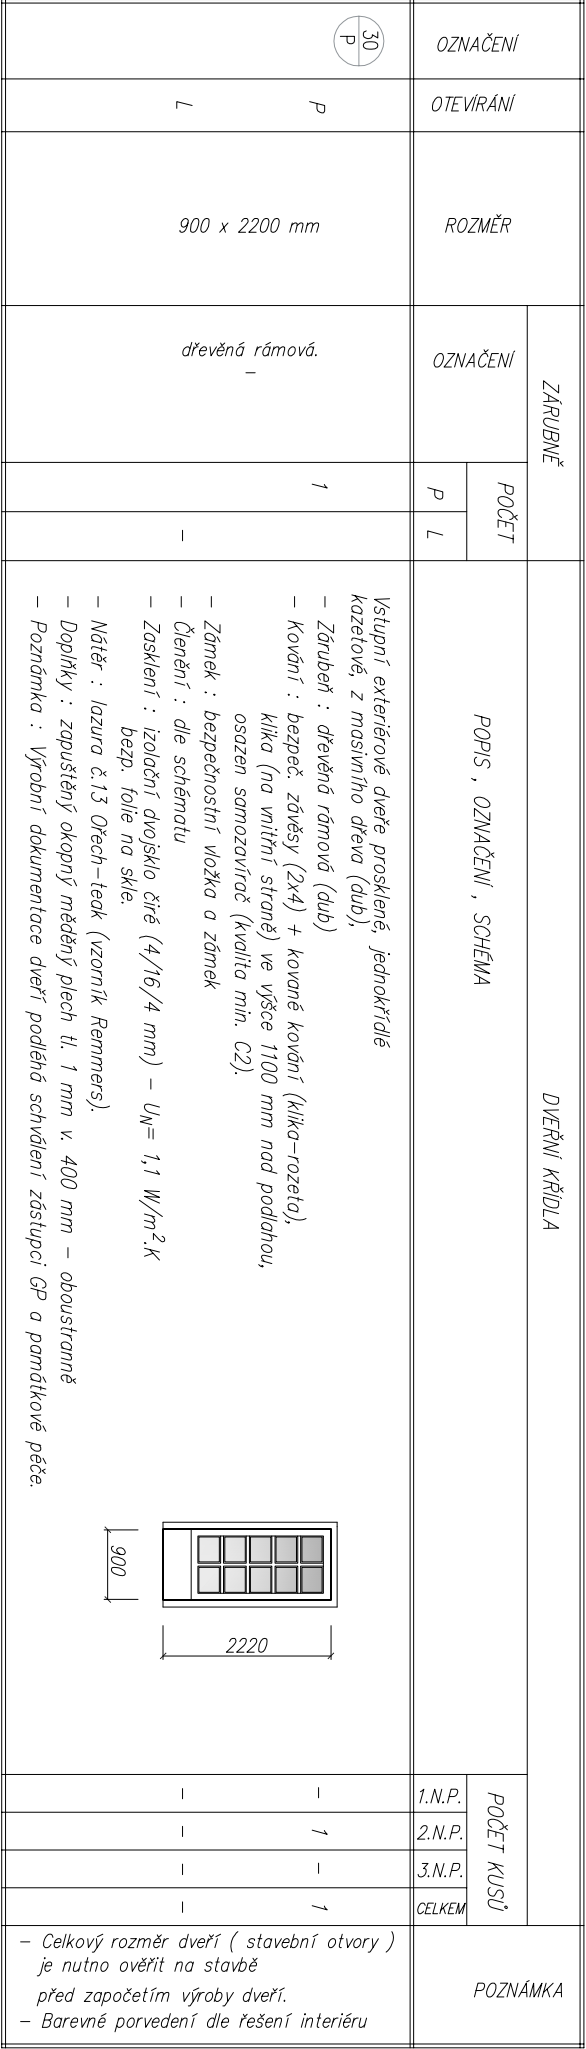 OZNAČENÍ
OTEVÍRÁNÍ
ROZMĚR
ZÁRUBNĚ
OZNAČENÍ
POČET
P
L
DVEŘNÍ KŘÍDLA
POPIS , OZNAČENÍ , SCHÉMA
POČET KUSŮ
1.N.P.
2.N.P.
3.N.P.
CELKEM
POZNÁMKA
30
P
P
L
900 x 2200 mm
dřevěná rámová.
–
1
–
Vstupní exteriérové dveře prosklené, jednokřídlé
kazetové, z masivního dřeva (dub),
– Zárubeň : dřevěná rámová (dub)
– Kování : bezpeč. závěsy (2x4) + kované kování (klika–rozeta),
klika (na vnitřní straně) ve výšce 1100 mm nad podlahou,
osazen samozavírač (kvalita min. C2).
– Zámek : bezpečnostní vložka a zámek
– Členění : dle schématu
– Zasklení : izolační dvojsklo čiré (4/16/4 mm) – UN= 1,1 W/m².K
bezp. folie na skle.
– Nátěr : lazura č.13 Ořech–teak (vzorník Remmers).
– Doplňky : zapuštěný okopný měděný plech tl. 1 mm v. 400 mm – oboustranně
– Poznámka : Výrobní dokumentace dveří podléhá schválení zástupci GP a památkové péče.
900
2220
– 1 – 1
– – – –
– Celkový rozměr dveří ( stavební otvory )
je nutno ověřit na stavbě
před započetím výroby dveří.
– Barevné porvedení dle řešení interiéru